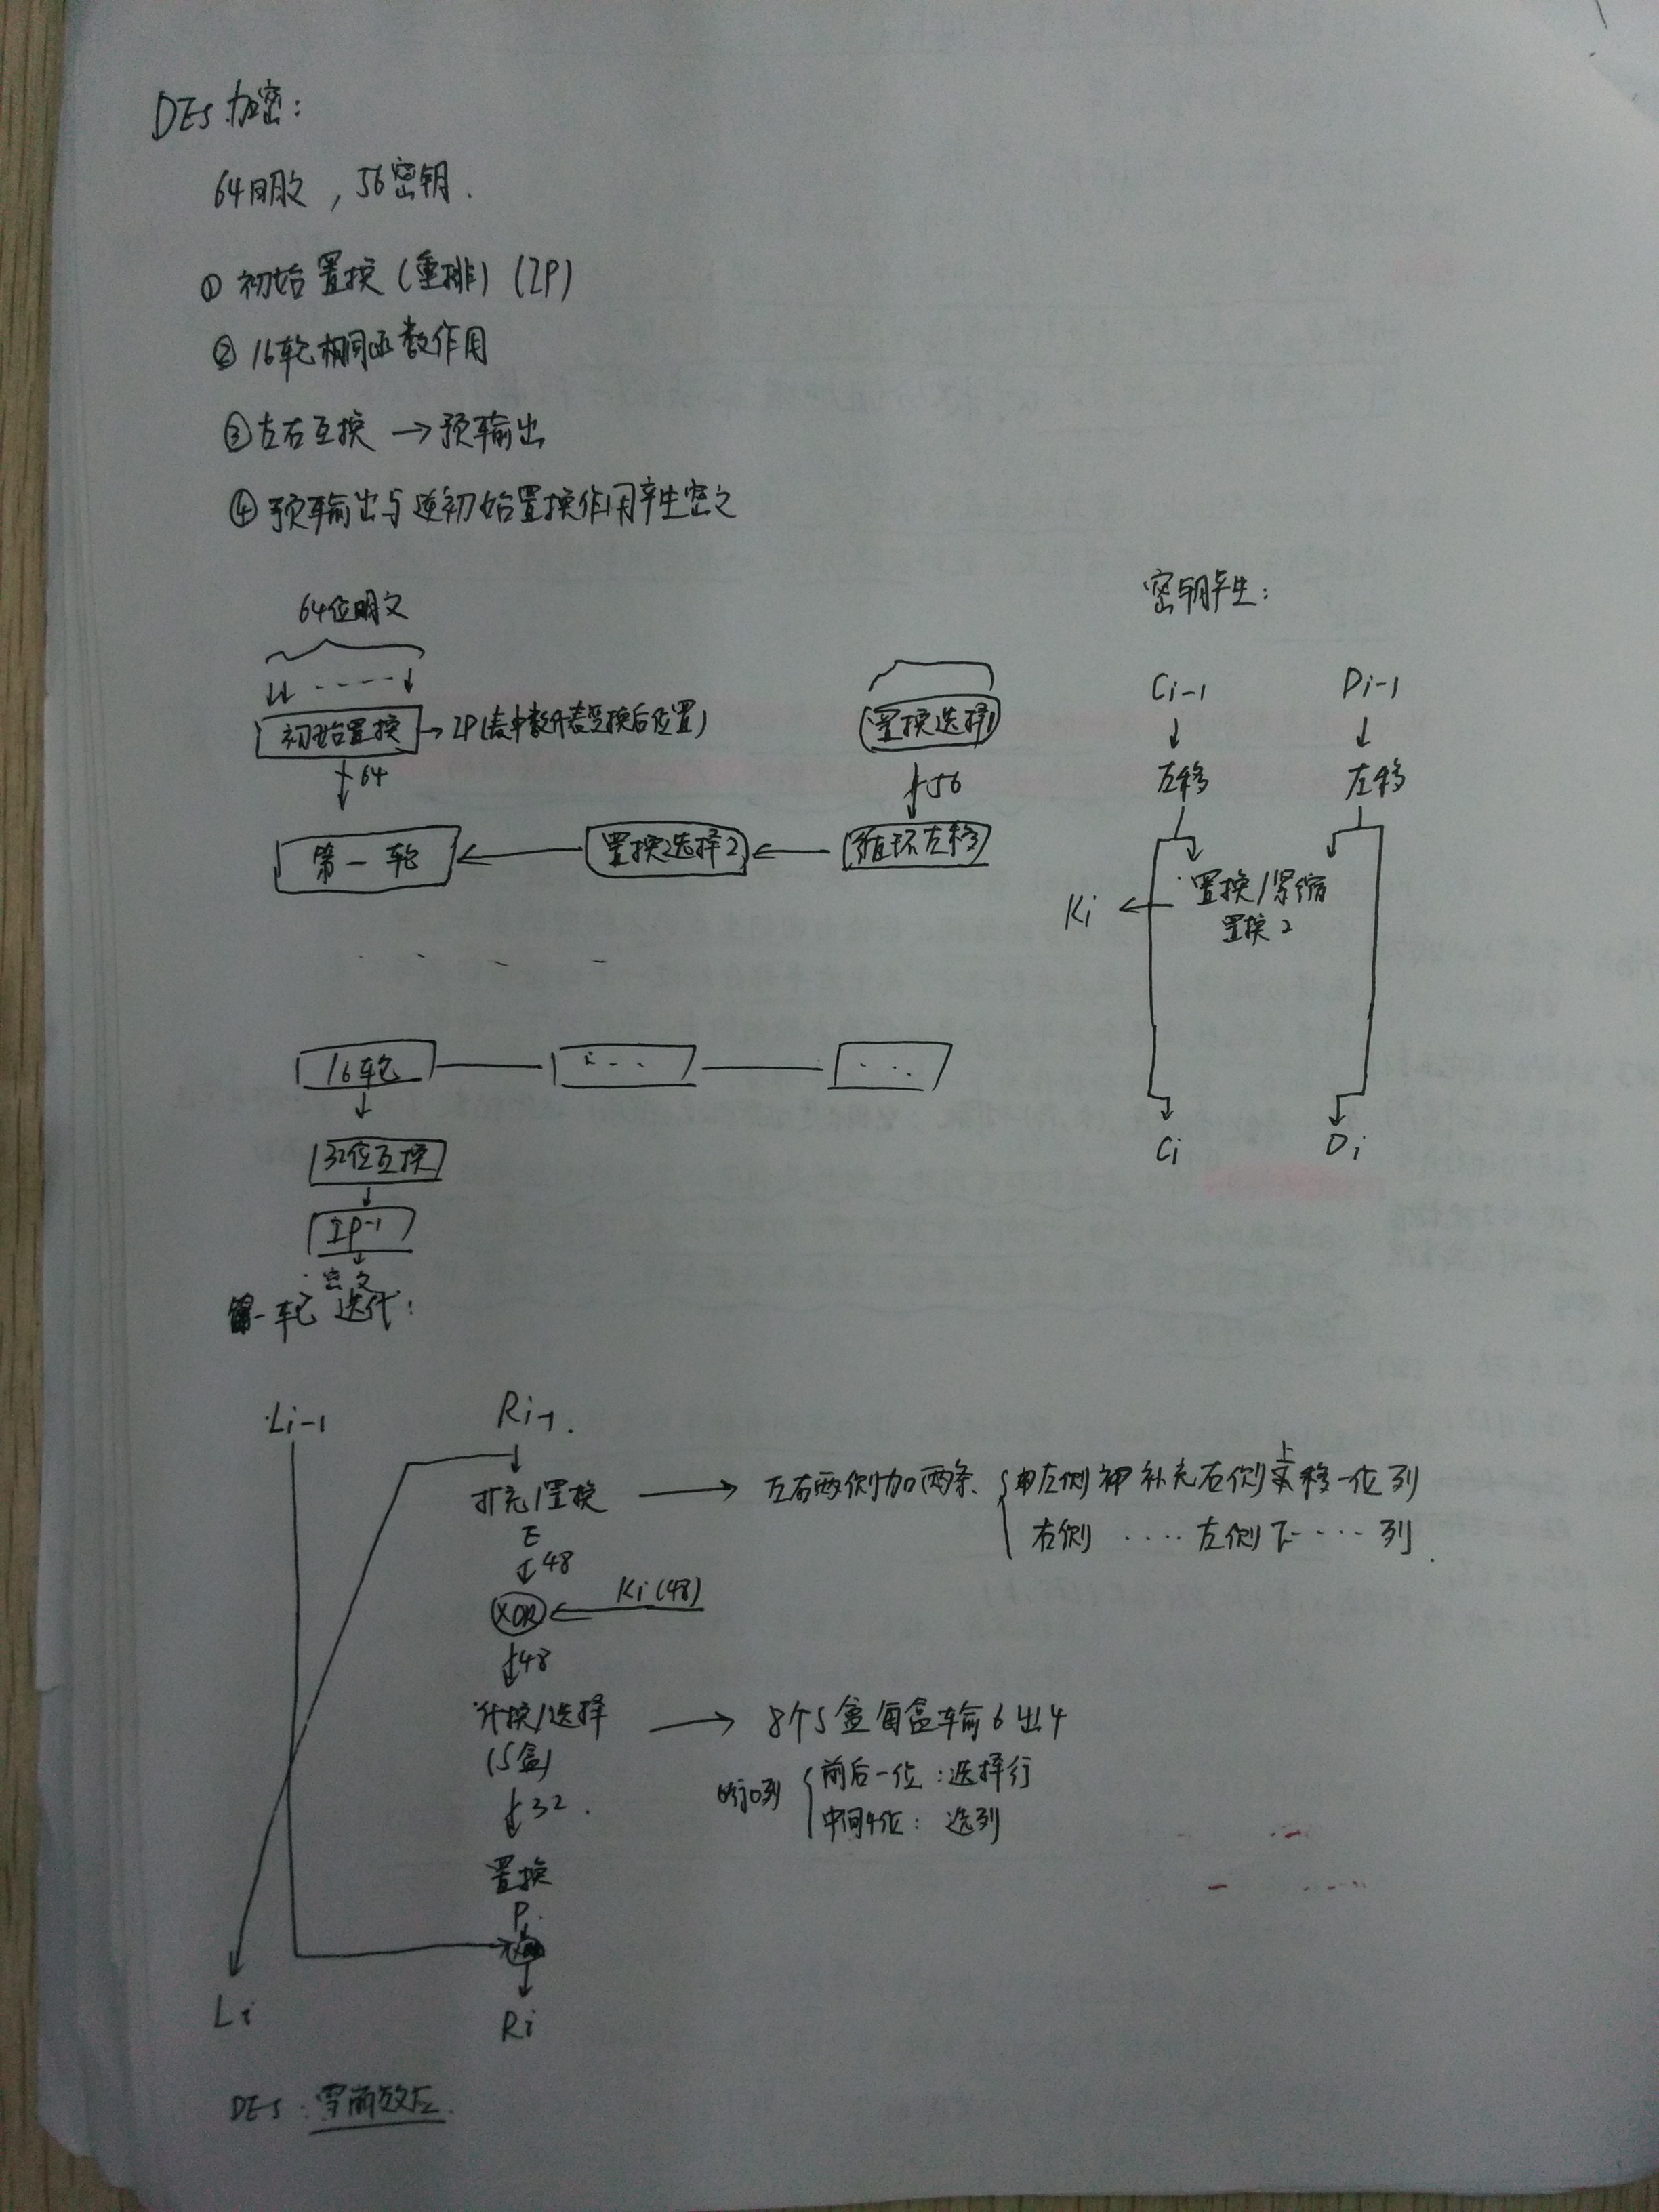 DES加密：
64明文，56密钥.
① 初始置换（重排）（IP）
② 16轮相同函数作用
③ 左右互换 → 预输出
④ 预输出与逆初始置换作用产生密文
64位明文
初始置换 → IP（表中数代表变换后位置）
64
置换选择1
56
第一轮 ← 置换选择2 ← 循环左移
16轮
32位互换
IP-1
密文
密钥产生：
Ci-1 Di-1
左移 左移
Ki ← 置换/紧缩
置换2
Ci Di
第一轮迭代：
Li-1 Ri-1.
扩充/置换 → 左右两侧加两条. 左侧 补充右侧上移一位列
E 右侧 ···· 左侧下···· 列.
48
XOR ← Ki(48)
48
/选择 → 8个S盒每盒输6出4
(S盒) 前后一位：选择行
32. 中间4位：选列
置换
P.
Li Ri
DES：雪崩效应.